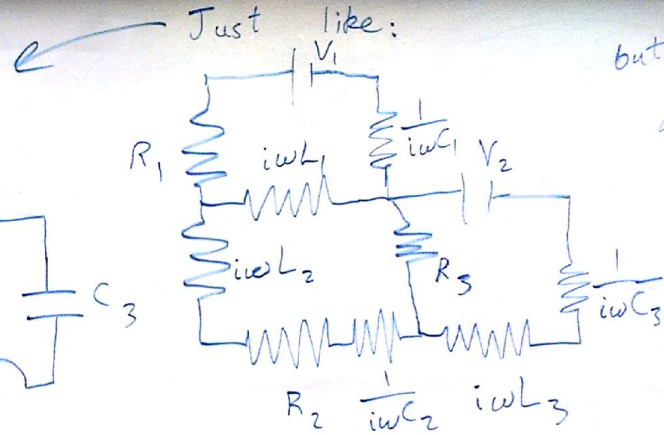 Just like:
but
V₁
R₁
iωL₁
1/iωC₁
V₂
iωL₂
R₃
C₃
1/iωC₃
R₂
1/iωC₂
iωL₃